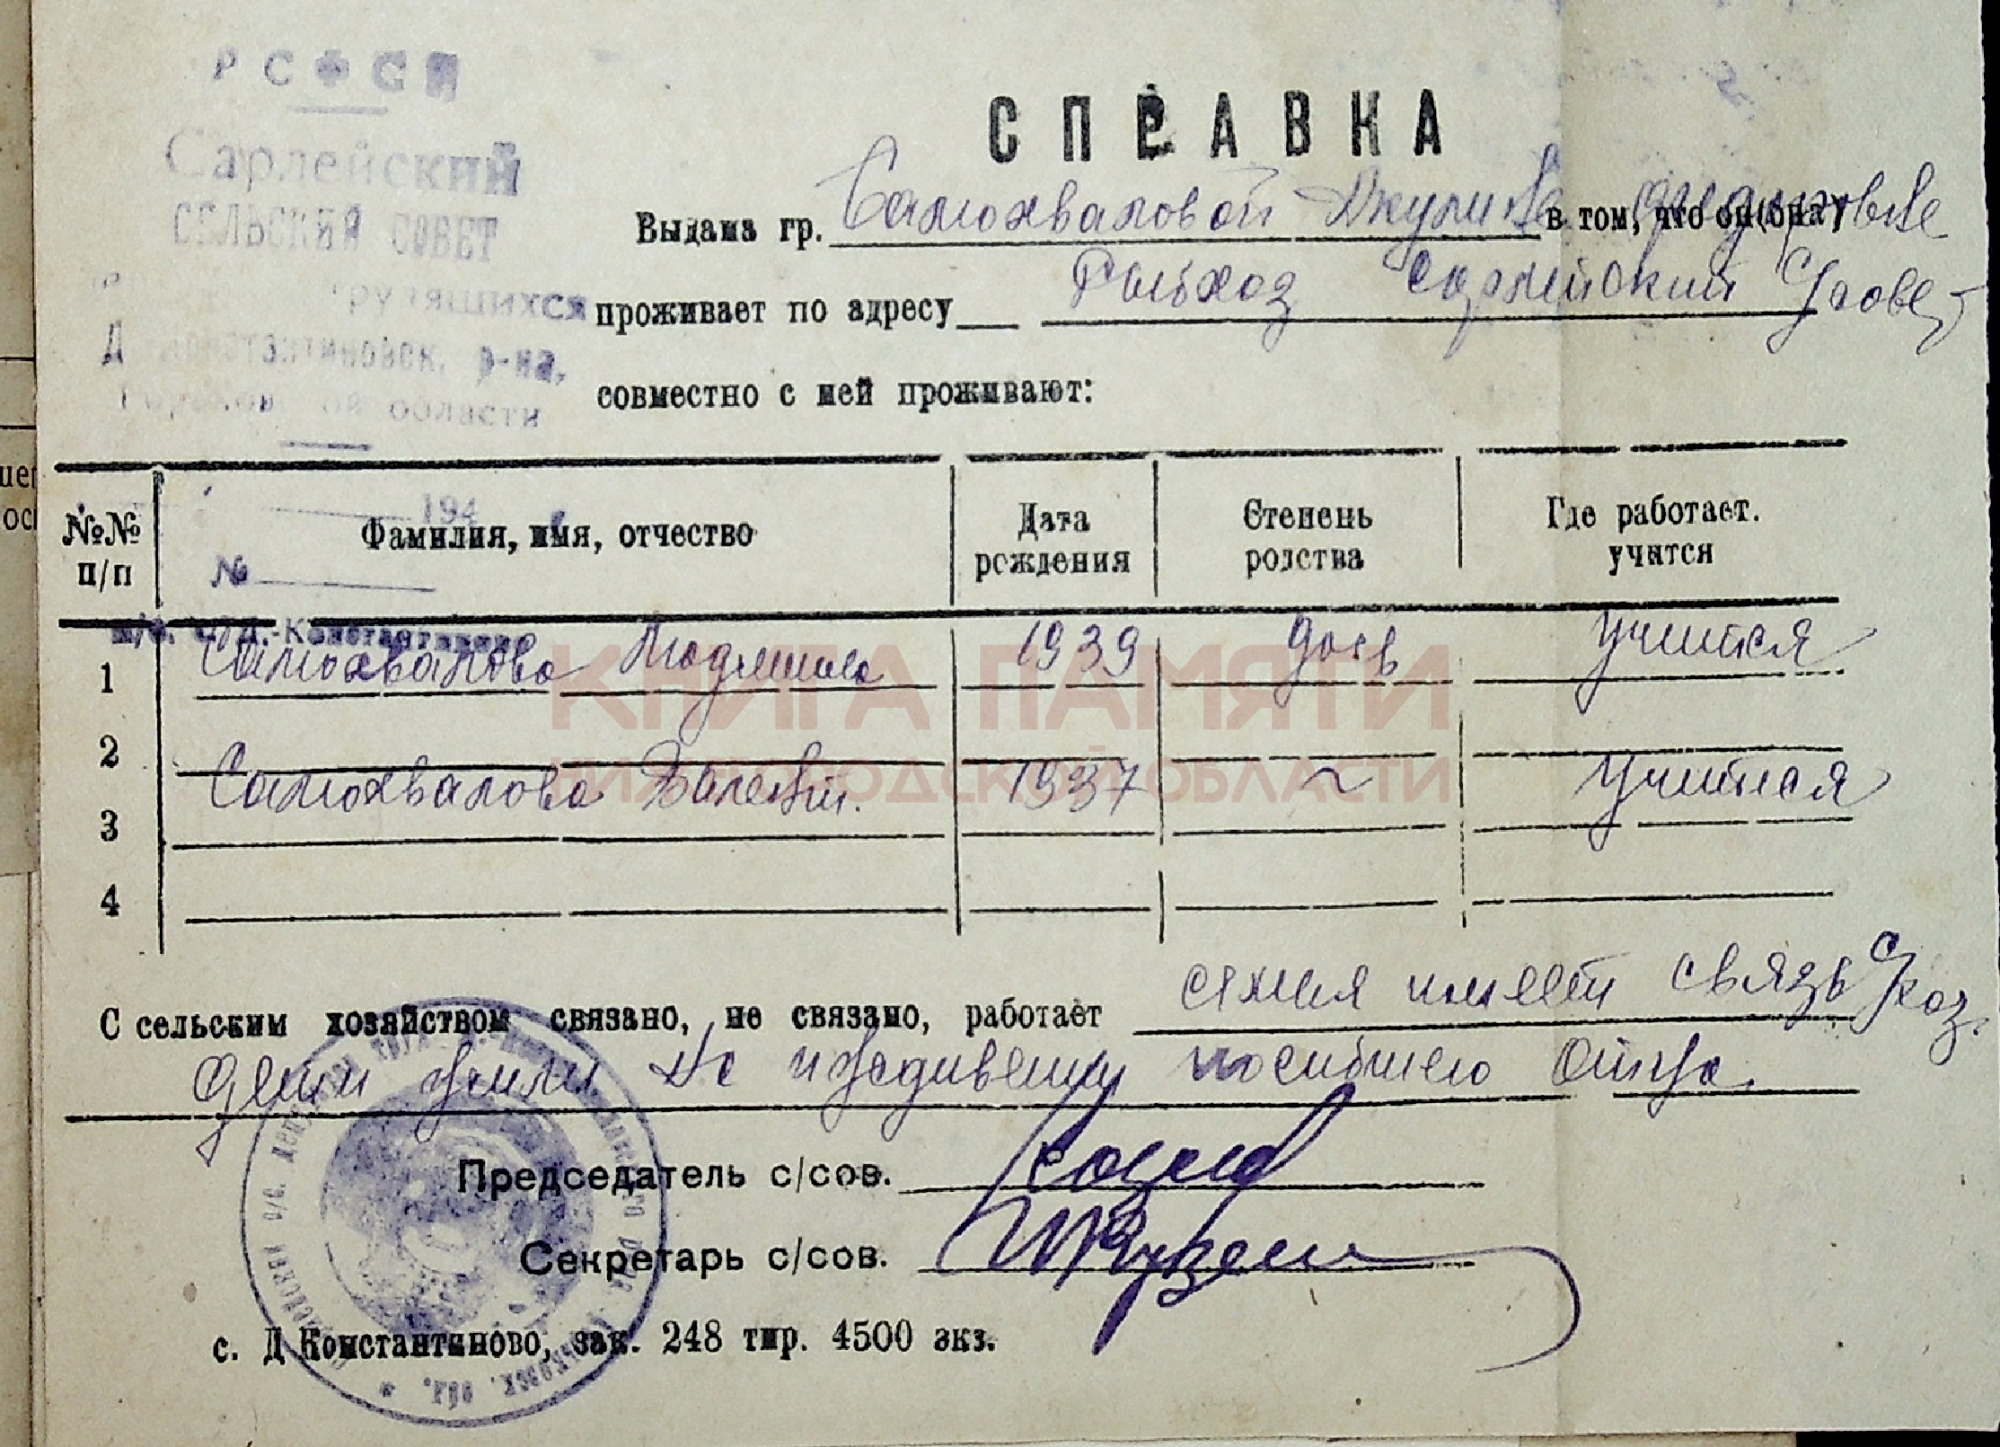 РСФСР
Сарлейский
СЕЛЬСКИЙ СОВЕТ
трудящихся
Д Константиновск. р-на,
Горьковской области
194
№
п/о. с/Д.-Константиново
СПРАВКА
Выдана гр. Самохваловой Акулине в том, что он(она)
проживает по адресу Рыбхоз Сарлейский С/совет
совместно с ней проживают:
№№ п/п Фамилия, имя, отчество Дата рождения Степень родства Где работает. учится
1 Самохвалова Людмила 1939 дочь учится
2 Самохвалова Валент. 1937 ~ учится
3
4
С сельским хозяйством связано, не связано, работает семья имеет связь С/хоз.
дети жили на иждивении погибшего отца
Председатель с/сов.
Секретарь с/сов.
с. Д Константиново, зак. 248 тир. 4500 экз.
КНИГА ПАМЯТИ
НИЖЕГОРОДСКОЙ ОБЛАСТИ